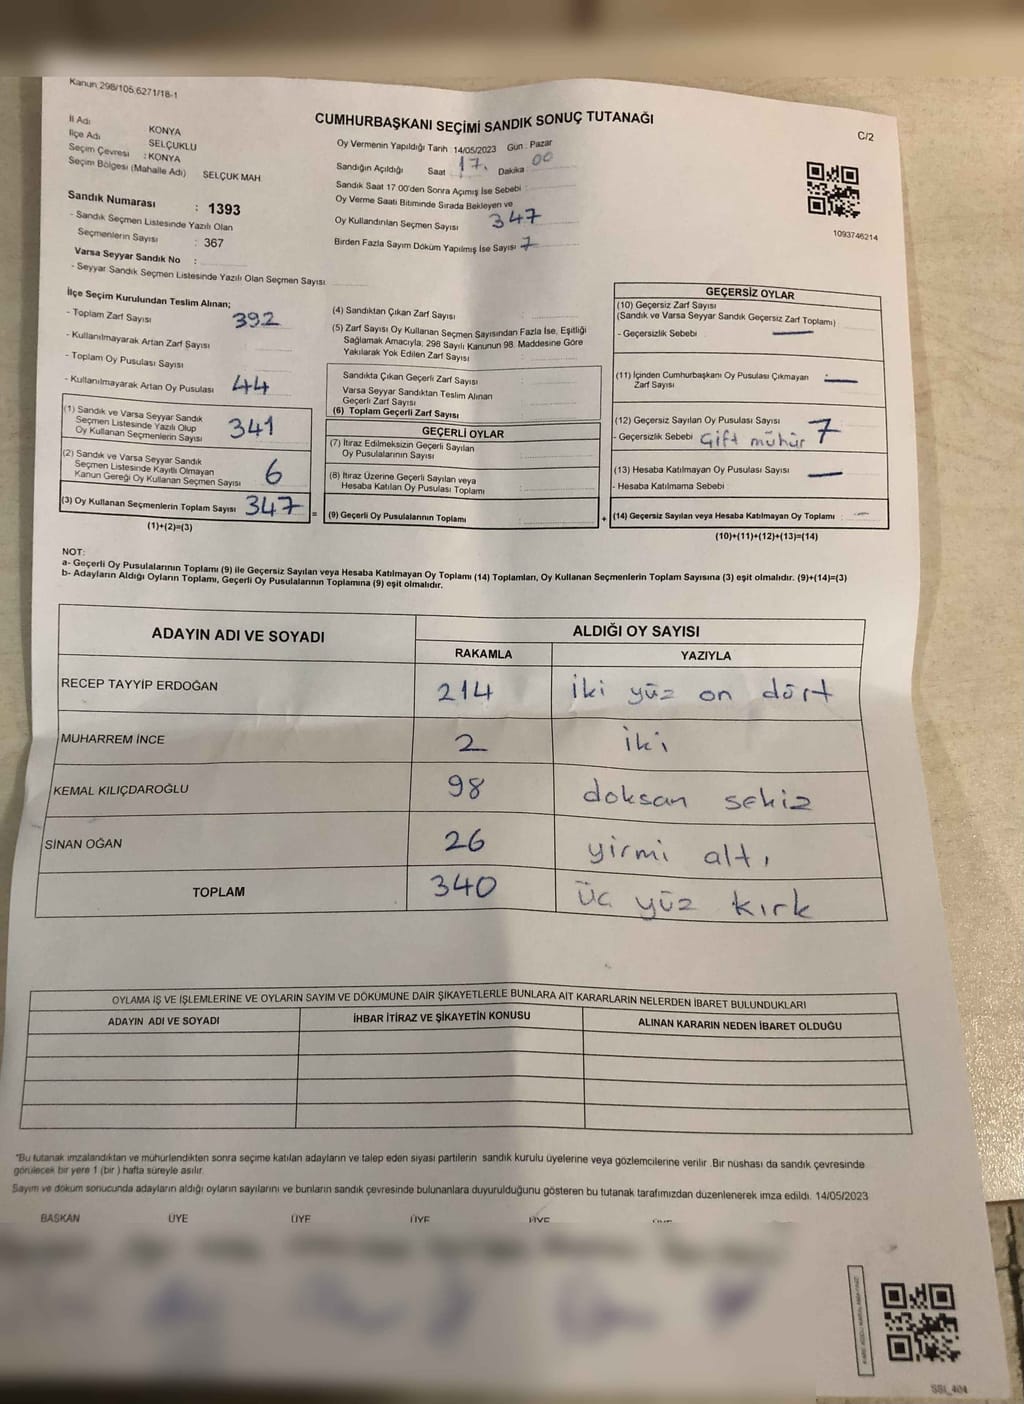 Kanun 298/105,6271/18-1
CUMHURBAŞKANI SEÇİMİ SANDIK SONUÇ TUTANAĞI
C/2
İl Adı KONYA
İlçe Adı SELÇUKLU
Seçim Çevresi : KONYA
Seçim Bölgesi (Mahalle Adı) SELÇUK MAH
Sandık Numarası : 1393
- Sandık Seçmen Listesinde Yazılı Olan
Seçmenlerin Sayısı : 367
Varsa Seyyar Sandık No :
- Seyyar Sandık Seçmen Listesinde Yazılı Olan Seçmen Sayısı
Oy Vermenin Yapıldığı Tarih : 14/05/2023 Gün : Pazar
Sandığın Açıldığı Saat 17. Dakika 00
Sandık Saat 17 00'den Sonra Açımış İse Sebebi
Oy Verme Saati Bitiminde Sırada Bekleyen ve
Oy Kullandırılan Seçmen Sayısı 347
Birden Fazla Sayım Döküm Yapılmış İse Sayısı 7
1093746214
İlçe Seçim Kurulundan Teslim Alınan;
- Toplam Zarf Sayısı 392
- Kullanılmayarak Artan Zarf Sayısı
- Toplam Oy Pusulası Sayısı
- Kullanılmayarak Artan Oy Pusulası 44
(1) Sandık ve Varsa Seyyar Sandık
Seçmen Listesinde Yazılı Olup
Oy Kullanan Seçmenlerin Sayısı 341
(2) Sandık ve Varsa Seyyar Sandık
Seçmen Listesinde Kayıtlı Olmayan
Kanun Gereği Oy Kullanan Seçmen Sayısı 6
(3) Oy Kullanan Seçmenlerin Toplam Sayısı 347 =
(1)+(2)=(3)
(4) Sandıktan Çıkan Zarf Sayısı
(5) Zarf Sayısı Oy Kullanan Seçmen Sayısından Fazla İse, Eşitliği
Sağlamak Amacıyla, 298 Sayılı Kanunun 98. Maddesine Göre
Yakılarak Yok Edilen Zarf Sayısı
Sandıkta Çıkan Geçerli Zarf Sayısı
Varsa Seyyar Sandıktan Teslim Alınan
Geçerli Zarf Sayısı
(6) Toplam Geçerli Zarf Sayısı
GEÇERLİ OYLAR
(7) İtiraz Edilmeksizin Geçerli Sayılan
Oy Pusulalarının Sayısı
(8) İtiraz Üzerine Geçerli Sayılan veya
Hesaba Katılan Oy Pusulası Toplamı
(9) Geçerli Oy Pusulalarının Toplamı +
GEÇERSİZ OYLAR
(10) Geçersiz Zarf Sayısı
(Sandık ve Varsa Seyyar Sandık Geçersiz Zarf Toplamı)
- Geçersizlik Sebebi —
(11) İçinden Cumhurbaşkanı Oy Pusulası Çıkmayan —
Zarf Sayısı
(12) Geçersiz Sayılan Oy Pusulası Sayısı 7
- Geçersizlik Sebebi Çift mühür
(13) Hesaba Katılmayan Oy Pusulası Sayısı —
- Hesaba Katılmama Sebebi
(14) Geçersiz Sayılan veya Hesaba Katılmayan Oy Toplamı : —
(10)+(11)+(12)+(13)=(14)
NOT:
a- Geçerli Oy Pusulalarının Toplamı (9) ile Geçersiz Sayılan veya Hesaba Katılmayan Oy Toplamı (14) Toplamları, Oy Kullanan Seçmenlerin Toplam Sayısına (3) eşit olmalıdır. (9)+(14)=(3)
b- Adayların Aldığı Oyların Toplamı, Geçerli Oy Pusulalarının Toplamına (9) eşit olmalıdır.
ADAYIN ADI VE SOYADI ALDIĞI OY SAYISI
RAKAMLA YAZIYLA
RECEP TAYYİP ERDOĞAN 214 iki yüz on dört
MUHARREM İNCE 2 iki
KEMAL KILIÇDAROĞLU 98 doksan sekiz
SİNAN OĞAN 26 yirmi altı
TOPLAM 340 üç yüz kırk
OYLAMA İŞ VE İŞLEMLERİNE VE OYLARIN SAYIM VE DÖKÜMÜNE DAİR ŞİKAYETLERLE BUNLARA AİT KARARLARIN NELERDEN İBARET BULUNDUKLARI
ADAYIN ADI VE SOYADI İHBAR İTİRAZ VE ŞİKAYETİN KONUSU ALINAN KARARIN NEDEN İBARET OLDUĞU
*Bu tutanak imzalandıktan ve mühürlendikten sonra seçime katılan adayların ve talep eden siyasi partilerin sandık kurulu üyelerine veya gözlemcilerine verilir .Bir nüshası da sandık çevresinde
görülecek bir yere 1 (bir ) hafta süreyle asılır.
Sayım ve döküm sonucunda adayların aldığı oyların sayılarını ve bunların sandık çevresinde bulunanlara duyurulduğunu gösteren bu tutanak tarafımızdan düzenlenerek imza edildi. 14/05/2023
BAŞKAN ÜYE ÜYE ÜYE ÜYE
SSI_404